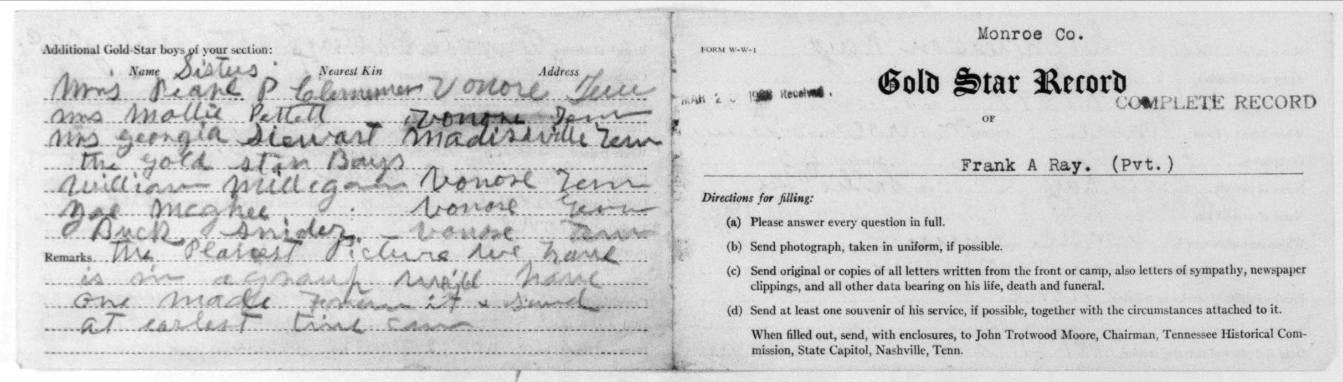 Additional Gold-Star boys of your section:
Name Sisters Nearest Kin Address
Mrs Pearl P Vonore Tenn
Mrs Mollie Vonore Tenn
Mrs Georgia Stewart Madisonville Tenn
the gold star Boys
William Milligan Vonore Tenn
McGhee Vonore Tenn
Buck Snider Vonore Tenn
Remarks the Plainest Picture we have
is in a group we'll have
one made from it & send
at earlest time can
Monroe Co.
FORM W-W-1
Gold Star Record
MAR 2 Received.
COMPLETE RECORD
OF
Frank A Ray. (Pvt.)
Directions for filling:
(a) Please answer every question in full.
(b) Send photograph, taken in uniform, if possible.
(c) Send original or copies of all letters written from the front or camp, also letters of sympathy, newspaper
clippings, and all other data bearing on his life, death and funeral.
(d) Send at least one souvenir of his service, if possible, together with the circumstances attached to it.
When filled out, send, with enclosures, to John Trotwood Moore, Chairman, Tennessee Historical Com-
mission, State Capitol, Nashville, Tenn.